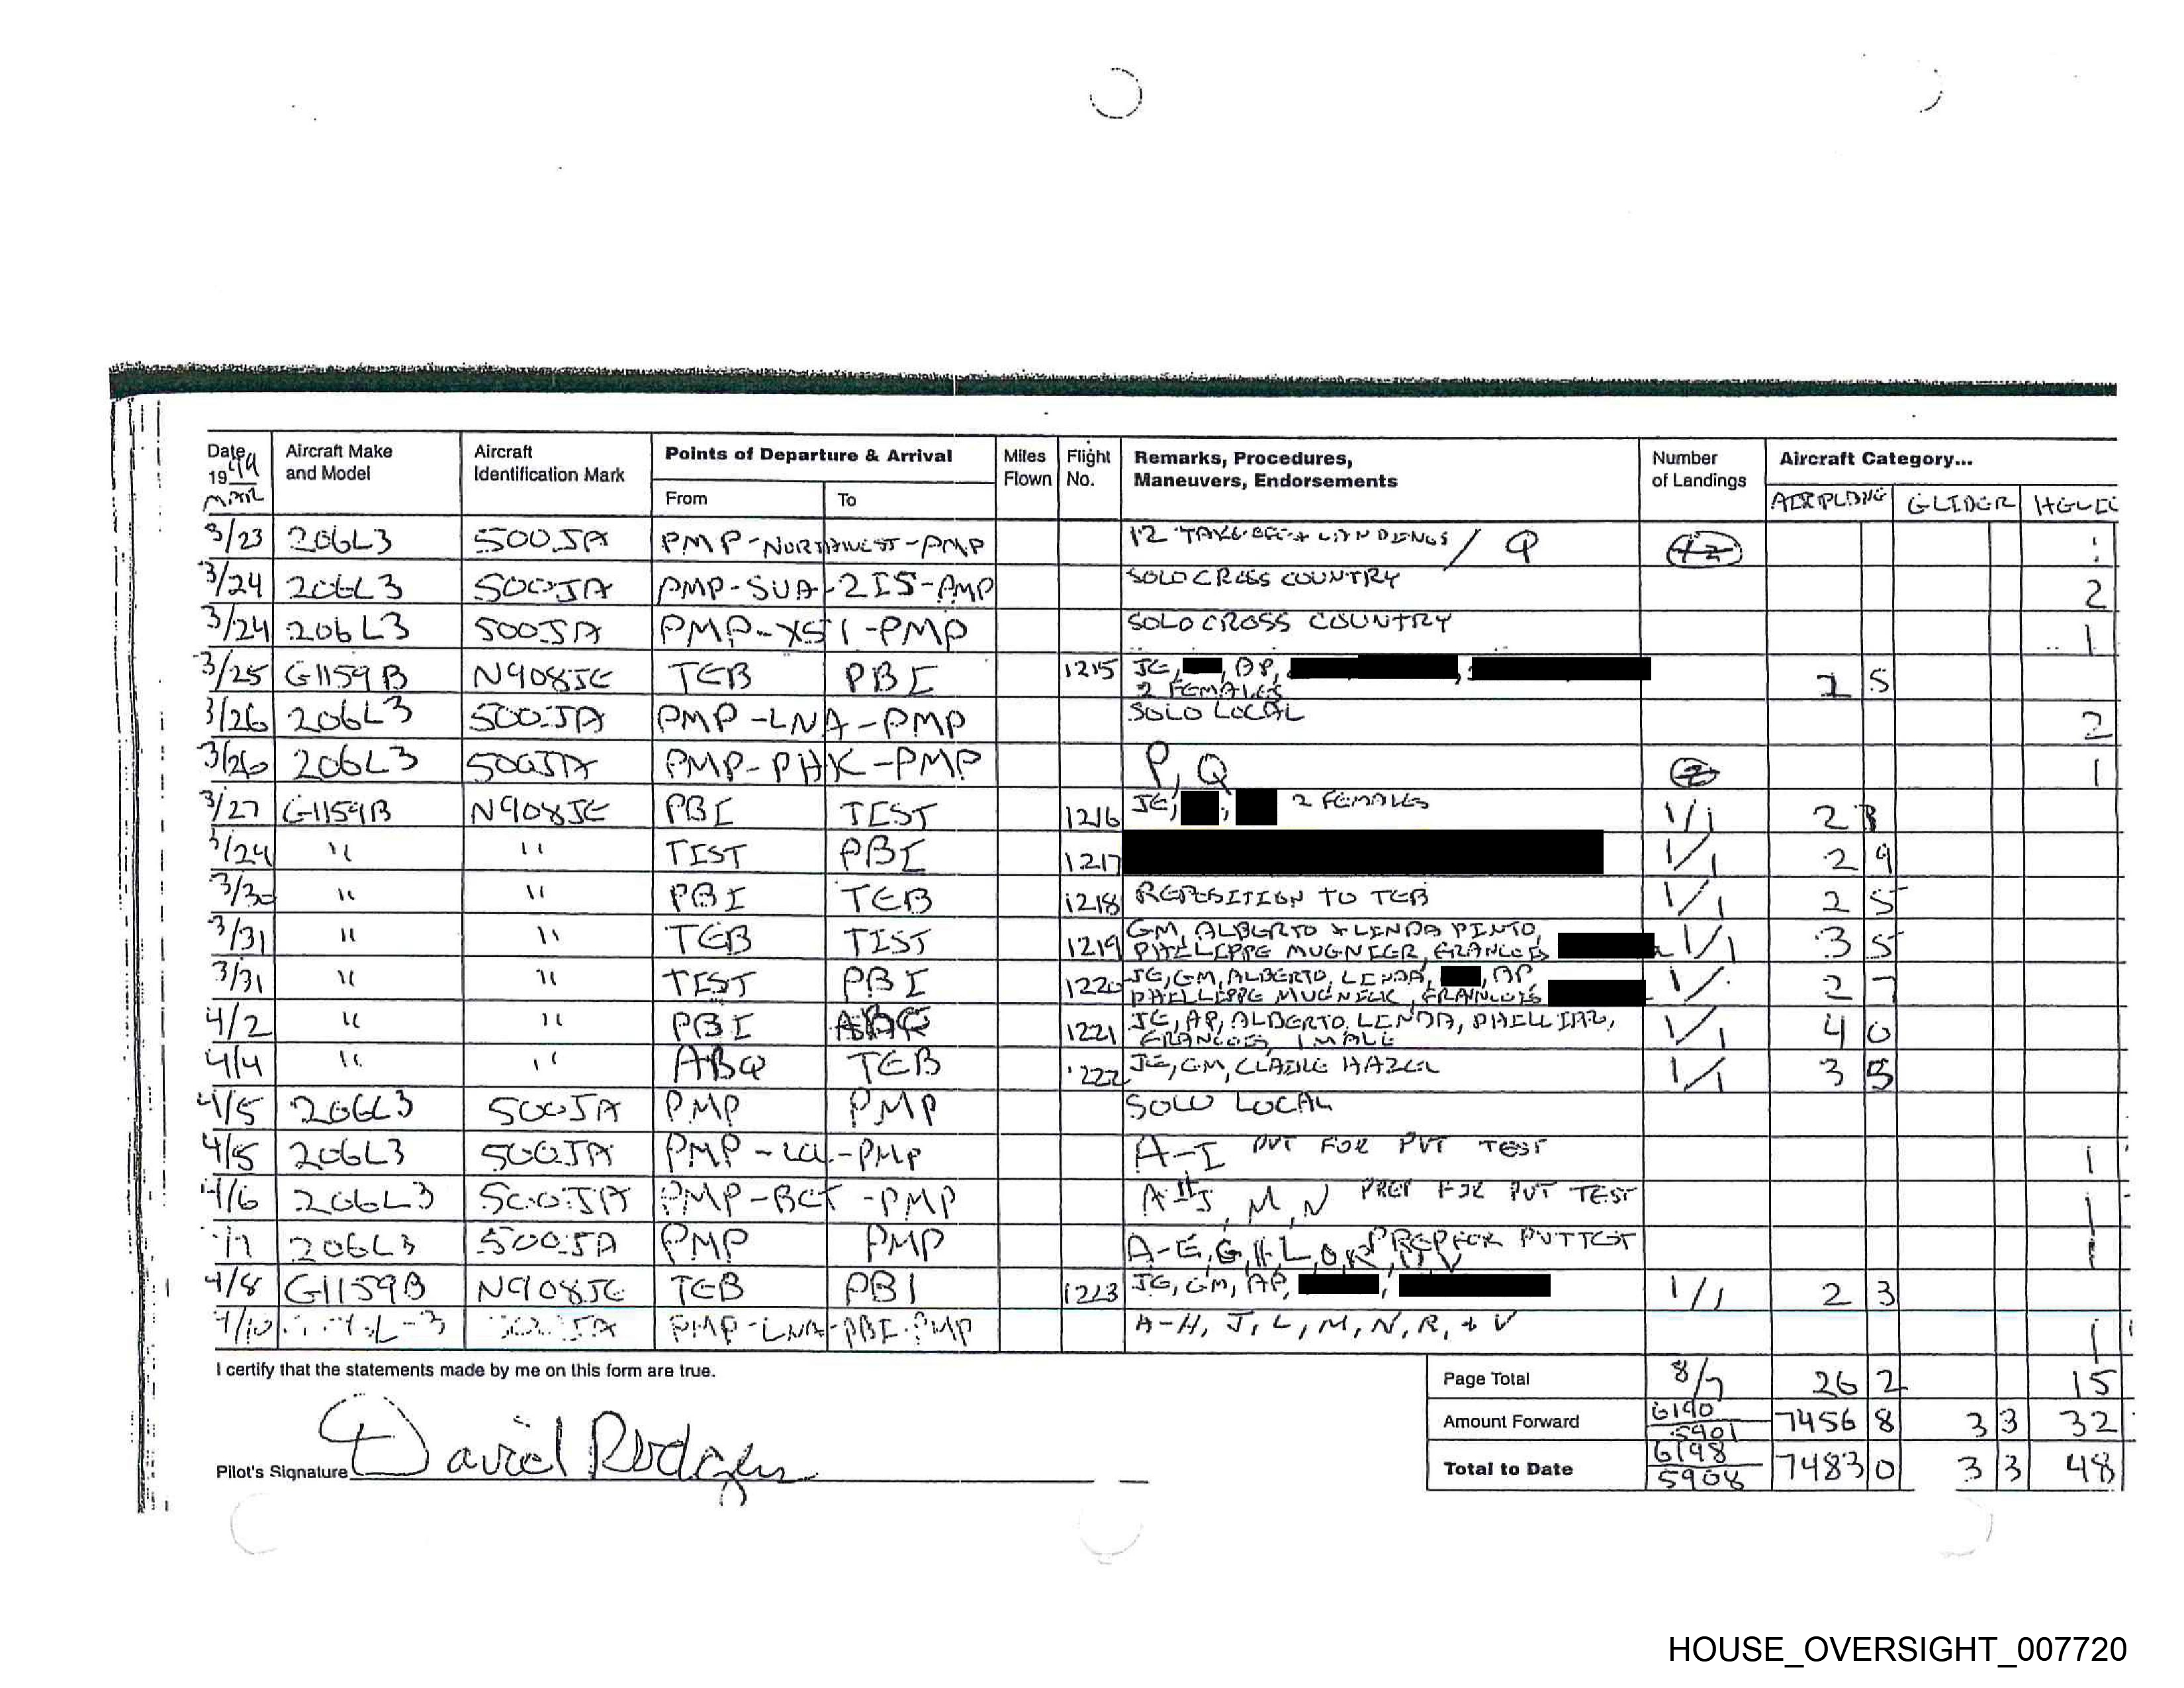 Date 1999 Aircraft Make and Model Aircraft Identification Mark Points of Departure & Arrival Miles Flown Flight No. Remarks, Procedures, Maneuvers, Endorsements Number of Landings Aircraft Category...
MAR From To AIRPLANE GLIDER HELIC
3/23 206L3 500JA PMP-NORTHWEST-PMP 12 TAKEOFF+LANDINGS / Q 12
3/24 206L3 500JA PMP-SUA-2IS-PMP SOLO CROSS COUNTRY 2
3/24 206L3 500JA PMP-X51-PMP SOLO CROSS COUNTRY 1
3/25 G1159B N908JE TEB PBI 1215 JE, AP,
2 FEMALES 2 5
3/26 206L3 500JA PMP-LNA-PMP SOLO LOCAL 2
3/26 206L3 500JA PMP-PHK-PMP P, Q 2 1
3/27 G1159B N908JE PBI TIST 1216 JE, , 2 FEMALES 1/1 2
3/29 " " TIST PBI 1217 1/1 2 9
3/30 " " PBI TEB 1218 REPOSITION TO TEB 1/1 2 5
3/31 " " TEB TIST 1219 GM, ALBERTO + LINDA PINTO,
PHILLIPPE MUGNIER, FRANCOIS 1/1 3 5
3/31 " " TIST PBI 1220 JE, GM, ALBERTO, LINDA, , AP,
PHILLIPPE MUGNIER, FRANCOIS 1/ 2 7
4/2 " " PBI ABQ 1221 JE, AP, ALBERTO, LINDA, PHILLIPE,
FRANCOIS, 1 MALE 1/1 4 0
4/4 " " ABQ TEB 1222 JE, GM, HAZEL 1/1 3
4/5 206L3 500JA PMP PMP SOLO LOCAL
4/5 206L3 500JA PMP - -PMP A-I FOR PVT TEST 1
4/6 206L3 500JA PMP-BCT-PMP A-J, M, N PREP FOR PVT TEST 1
206L3 500JA PMP PMP A-E, G, H, L, PREP FOR PVT TEST 1
4/8 G1159B N908JE TEB PBI 1223 JE, GM, AP, , 1/1 2 3
4/10 L-3 PMP-LNA-PBI-PMP A-H, J, L, M, N, R, + V 1
I certify that the statements made by me on this form are true.
Page Total 8/7 26 2 15
Amount Forward 6190 5901 7456 8 3 3 32
Pilot's Signature David Rodgers
Total to Date 6198 5908 7483 0 3 3 48
HOUSE_OVERSIGHT_007720